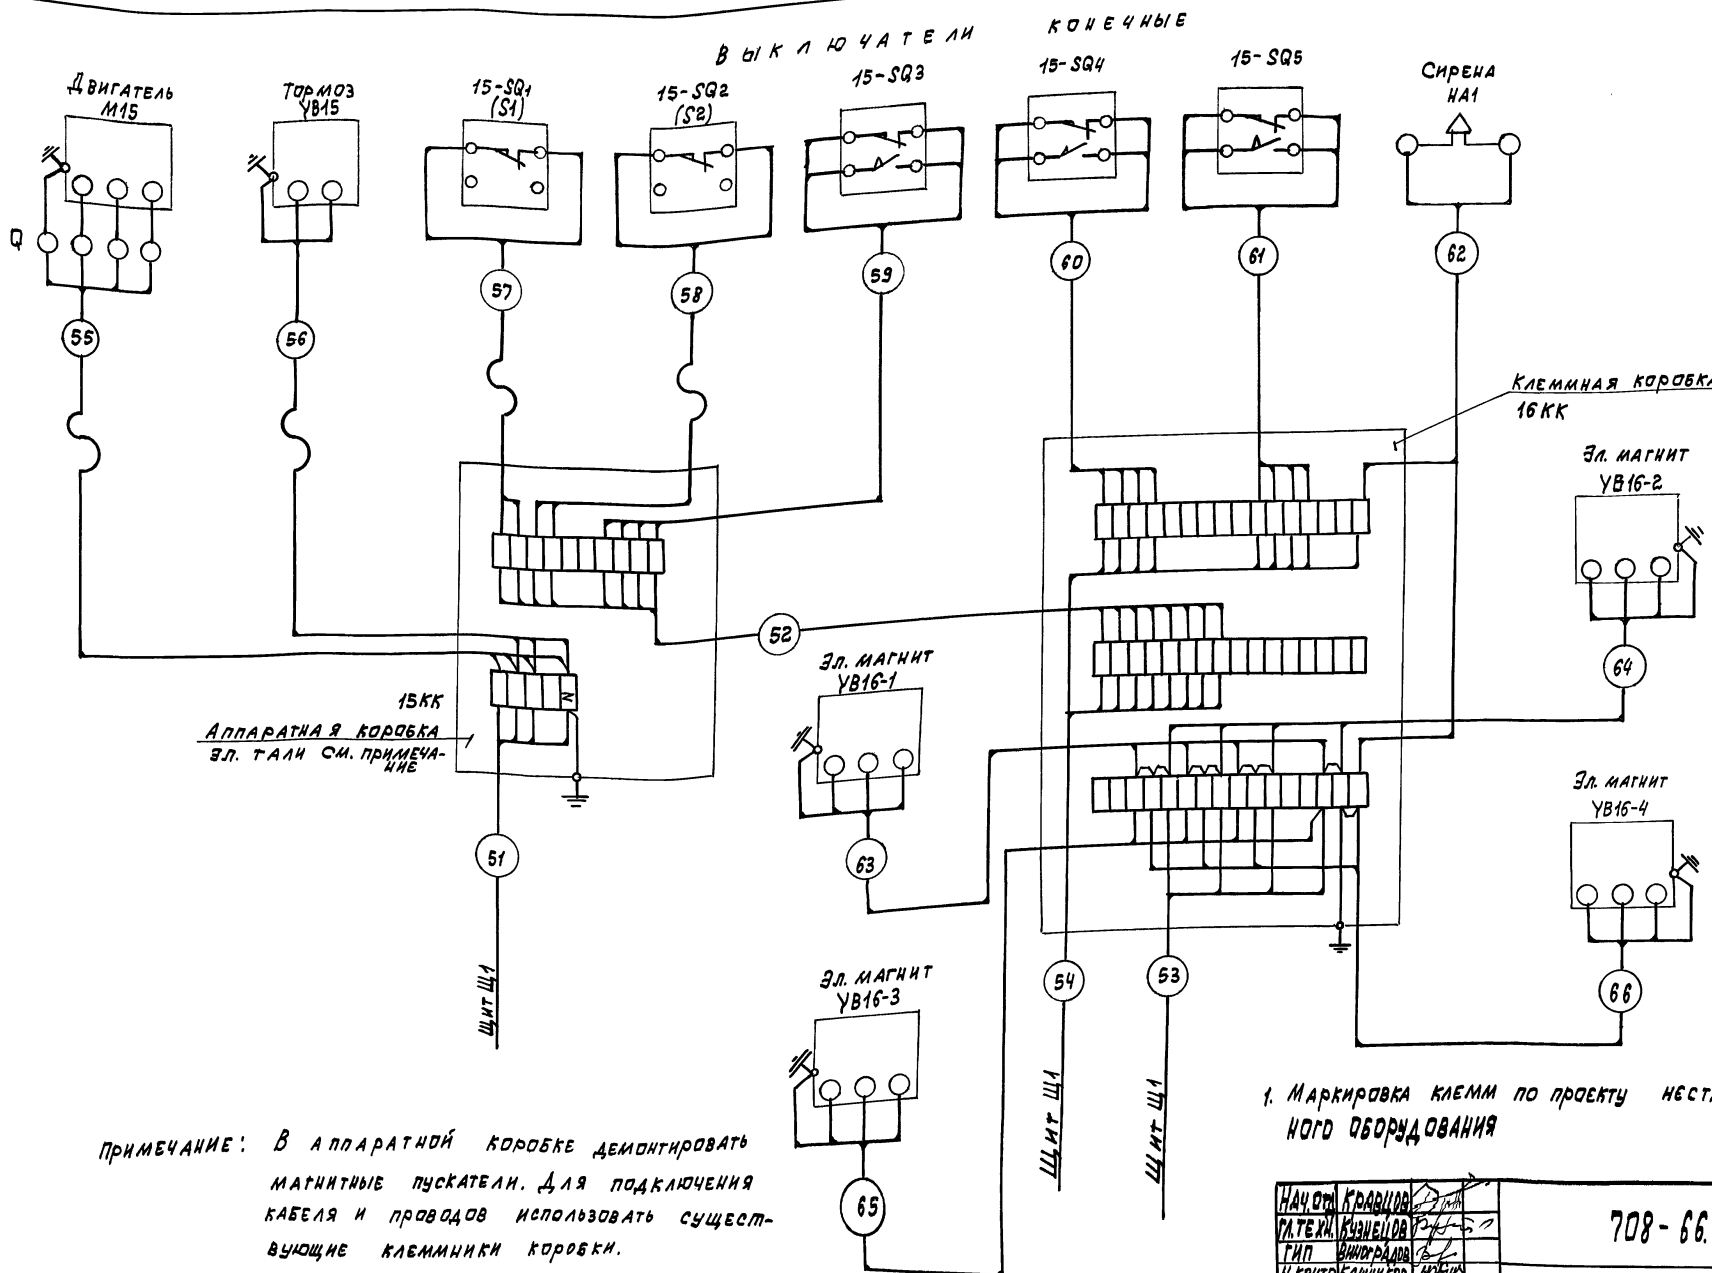 ВЫКЛЮЧАТЕЛИ КОНЕЧНЫЕ
Двигатель
М15
Тормоз
YB15
15-SQ1
(S1)
15-SQ2
(S2)
15-SQ3
15-SQ4
15-SQ5
Сирена
НА1
Q
55
56
57
58
59
60
61
62
Клеммная коробка
16КК
Эл. магнит
YB16-2
64
52
N
15КК
Аппаратная коробка
эл. тали см. примеча-
ние
Эл. магнит
YB16-1
63
51
Щит Щ1
Эл. магнит
YB16-4
66
Эл. магнит
YB16-3
65
54
53
Щит Щ1
Щит Щ1
1. Маркировка клемм по проекту
ного оборудования
Примечание: В аппаратной коробке демонтировать
магнитные пускатели. Для подключения
кабеля и проводов использовать сущест-
вующие клеммники коробки.
Нач. отд Кравцов
Гл. техн. Кузнецов
ГИП Виноградов
708-66.